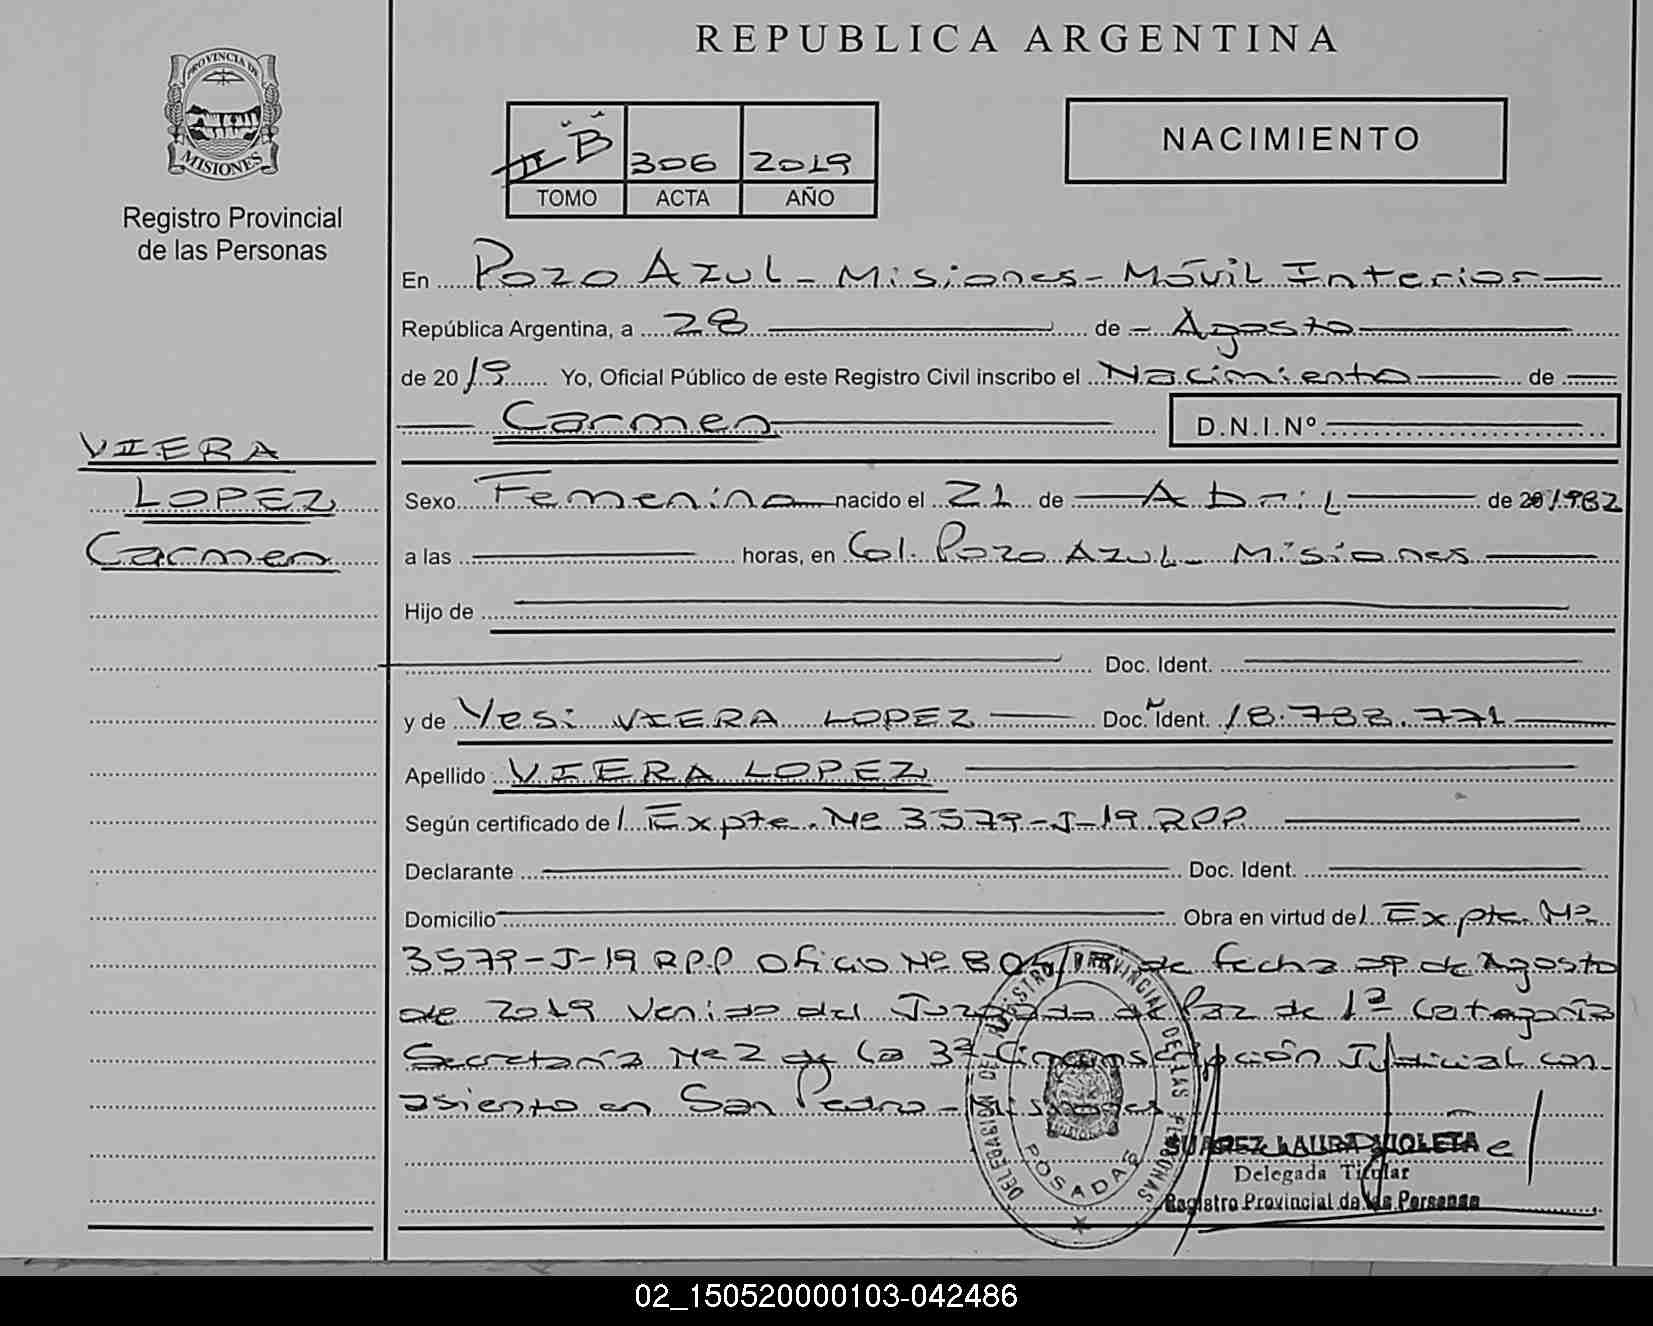 REPUBLICA ARGENTINA
PROVINCIA DE
MISIONES
Registro Provincial
de las Personas
B 306 2019
TOMO ACTA AÑO
NACIMIENTO
En Pozo Azul - Misiones - Móvil Interior
República Argentina, a 28 de Agosto
de 2019 Yo, Oficial Público de este Registro Civil inscribo el Nacimiento de
Carmen D.N.I.Nº
VIERA
LOPEZ
Carmen
Sexo Femenino nacido el 21 de Abril de 1982
a las horas, en Col. Pozo Azul - Misiones
Hijo de
Doc. Ident.
y de Yesi VIERA LOPEZ Doc. Ident. 18.788.771
Apellido VIERA LOPEZ
Según certificado de l Expte. Nº 3579-J-19 RPP
Declarante Doc. Ident.
Domicilio Obra en virtud del Expte. Nº
3579-J-19 RPP Oficio Nº de fecha 09 de Agosto
de 2019 Venido del Juzgado de Paz de 1ª Categoría
Secretaría Nº 2 de la 3ª Circunscripción Judicial con
asiento en San Pedro - Misiones
DELEGACION DEL REGISTRO PROVINCIAL DE LAS PERSONAS
POSADAS
SUAREZ LAURA VIOLETA
Delegada Titular
Registro Provincial de las Personas
02_150520000103-042486